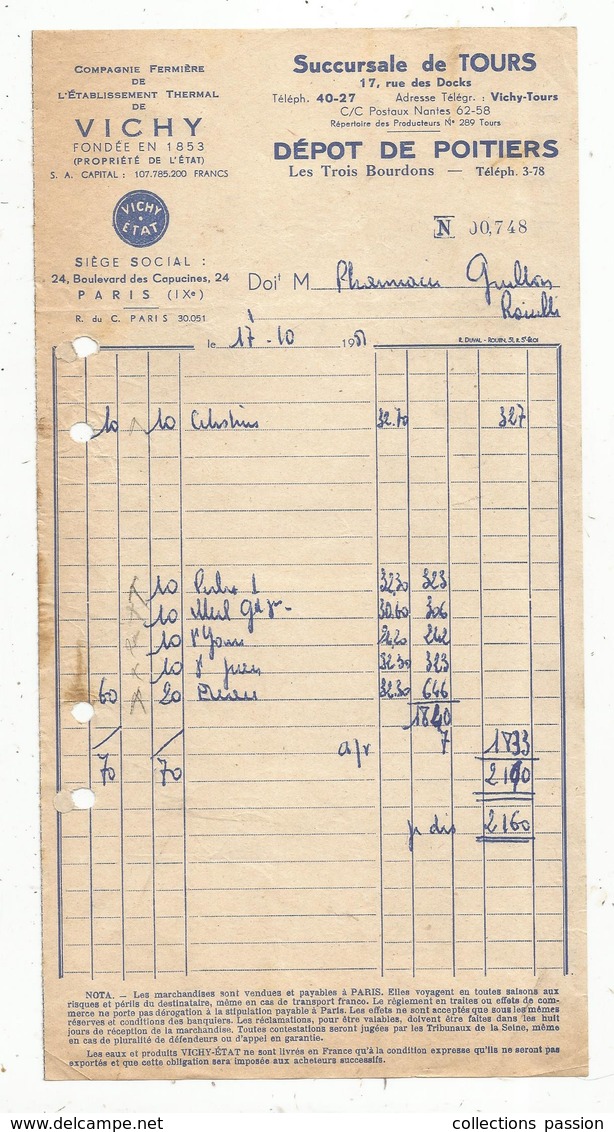 COMPAGNIE FERMIÈRE
DE
L'ÉTABLISSEMENT THERMAL
DE
VICHY
FONDÉE EN 1853
(PROPRIÉTÉ DE L'ÉTAT)
S. A. CAPITAL : 107.785.200 FRANCS
VICHY
ÉTAT
SIÈGE SOCIAL :
24, Boulevard des Capucines, 24
PARIS (IXe)
R. du C. PARIS 30.051
Succursale de TOURS
17, rue des Docks
Téléph. 40-27 Adresse Télégr. : Vichy-Tours
C/C Postaux Nantes 62-58
Répertoire des Producteurs N° 289 Tours
DÉPOT DE POITIERS
Les Trois Bourdons — Téléph. 3-78
N 00,748
Doit M Pharmacie
le 17 - 10 1951
R. DUVAL - ROUEN, 51, R. St-ÉLOI
10 10 Celestins 32.70 327
10 32.30 323
10 30.60 306
10 24.20 242
10 32.30 323
60 20 32.30 646
1840
a/r 7 1833
70 70
je dis 2160
NOTA. — Les marchandises sont vendues et payables à PARIS. Elles voyagent en toutes saisons aux
risques et périls du destinataire, même en cas de transport franco. Le règlement en traites ou effets de com-
merce ne porte pas dérogation à la stipulation payable à Paris. Les effets ne sont acceptés que sous les mêmes
réserves et conditions des banquiers. Les réclamations, pour être valables, doivent être faites dans les huit
jours de réception de la marchandise. Toutes contestations seront jugées par les Tribunaux de la Seine, même
en cas de pluralité de défendeurs ou d'appel en garantie.
Les eaux et produits VICHY-ÉTAT ne sont livrés en France qu'à la condition expresse qu'ils ne seront pas
exportés et que cette obligation sera imposée aux acheteurs successifs.
collections passion